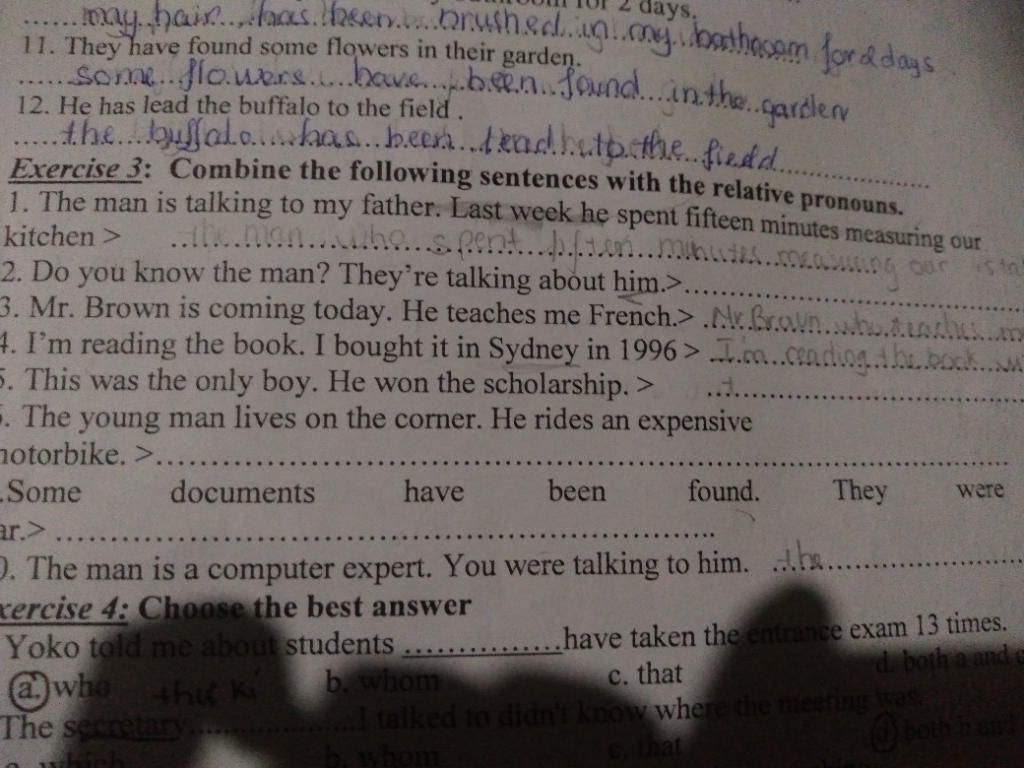 for 2 days.
may hair has been brushed in my bathroom for 2 days
11. They have found some flowers in their garden.
some flowers have been found in the garden
12. He has lead the buffalo to the field .
the buffalo has been lead to the field
Exercise 3: Combine the following sentences with the relative pronouns.
1. The man is talking to my father. Last week he spent fifteen minutes measuring our
kitchen > the man who spent fiften minutes measuring our
2. Do you know the man? They're talking about him.>
3. Mr. Brown is coming today. He teaches me French.> Mr. Brown who teaches
4. I'm reading the book. I bought it in Sydney in 1996 > I'm reading the book
. This was the only boy. He won the scholarship. > t
. The young man lives on the corner. He rides an expensive
otorbike. >
.Some documents have been found. They were
ar.>
. The man is a computer expert. You were talking to him. the
xercise 4: Choose the best answer
Yoko told me about students ..............have taken the entrance exam 13 times.
a. who b. whom c. that d. both a and c
The secretary..................I talked to didn't know where the meeting was.
which b. whom c. that d both b and